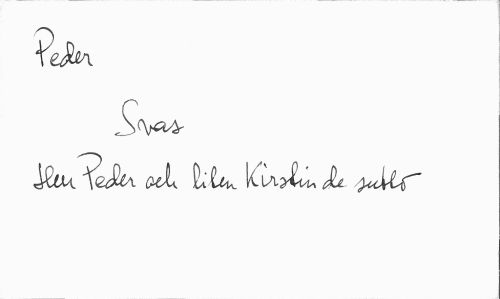 Peder
Svas
Herr Peder och liten Kirstin de sutto